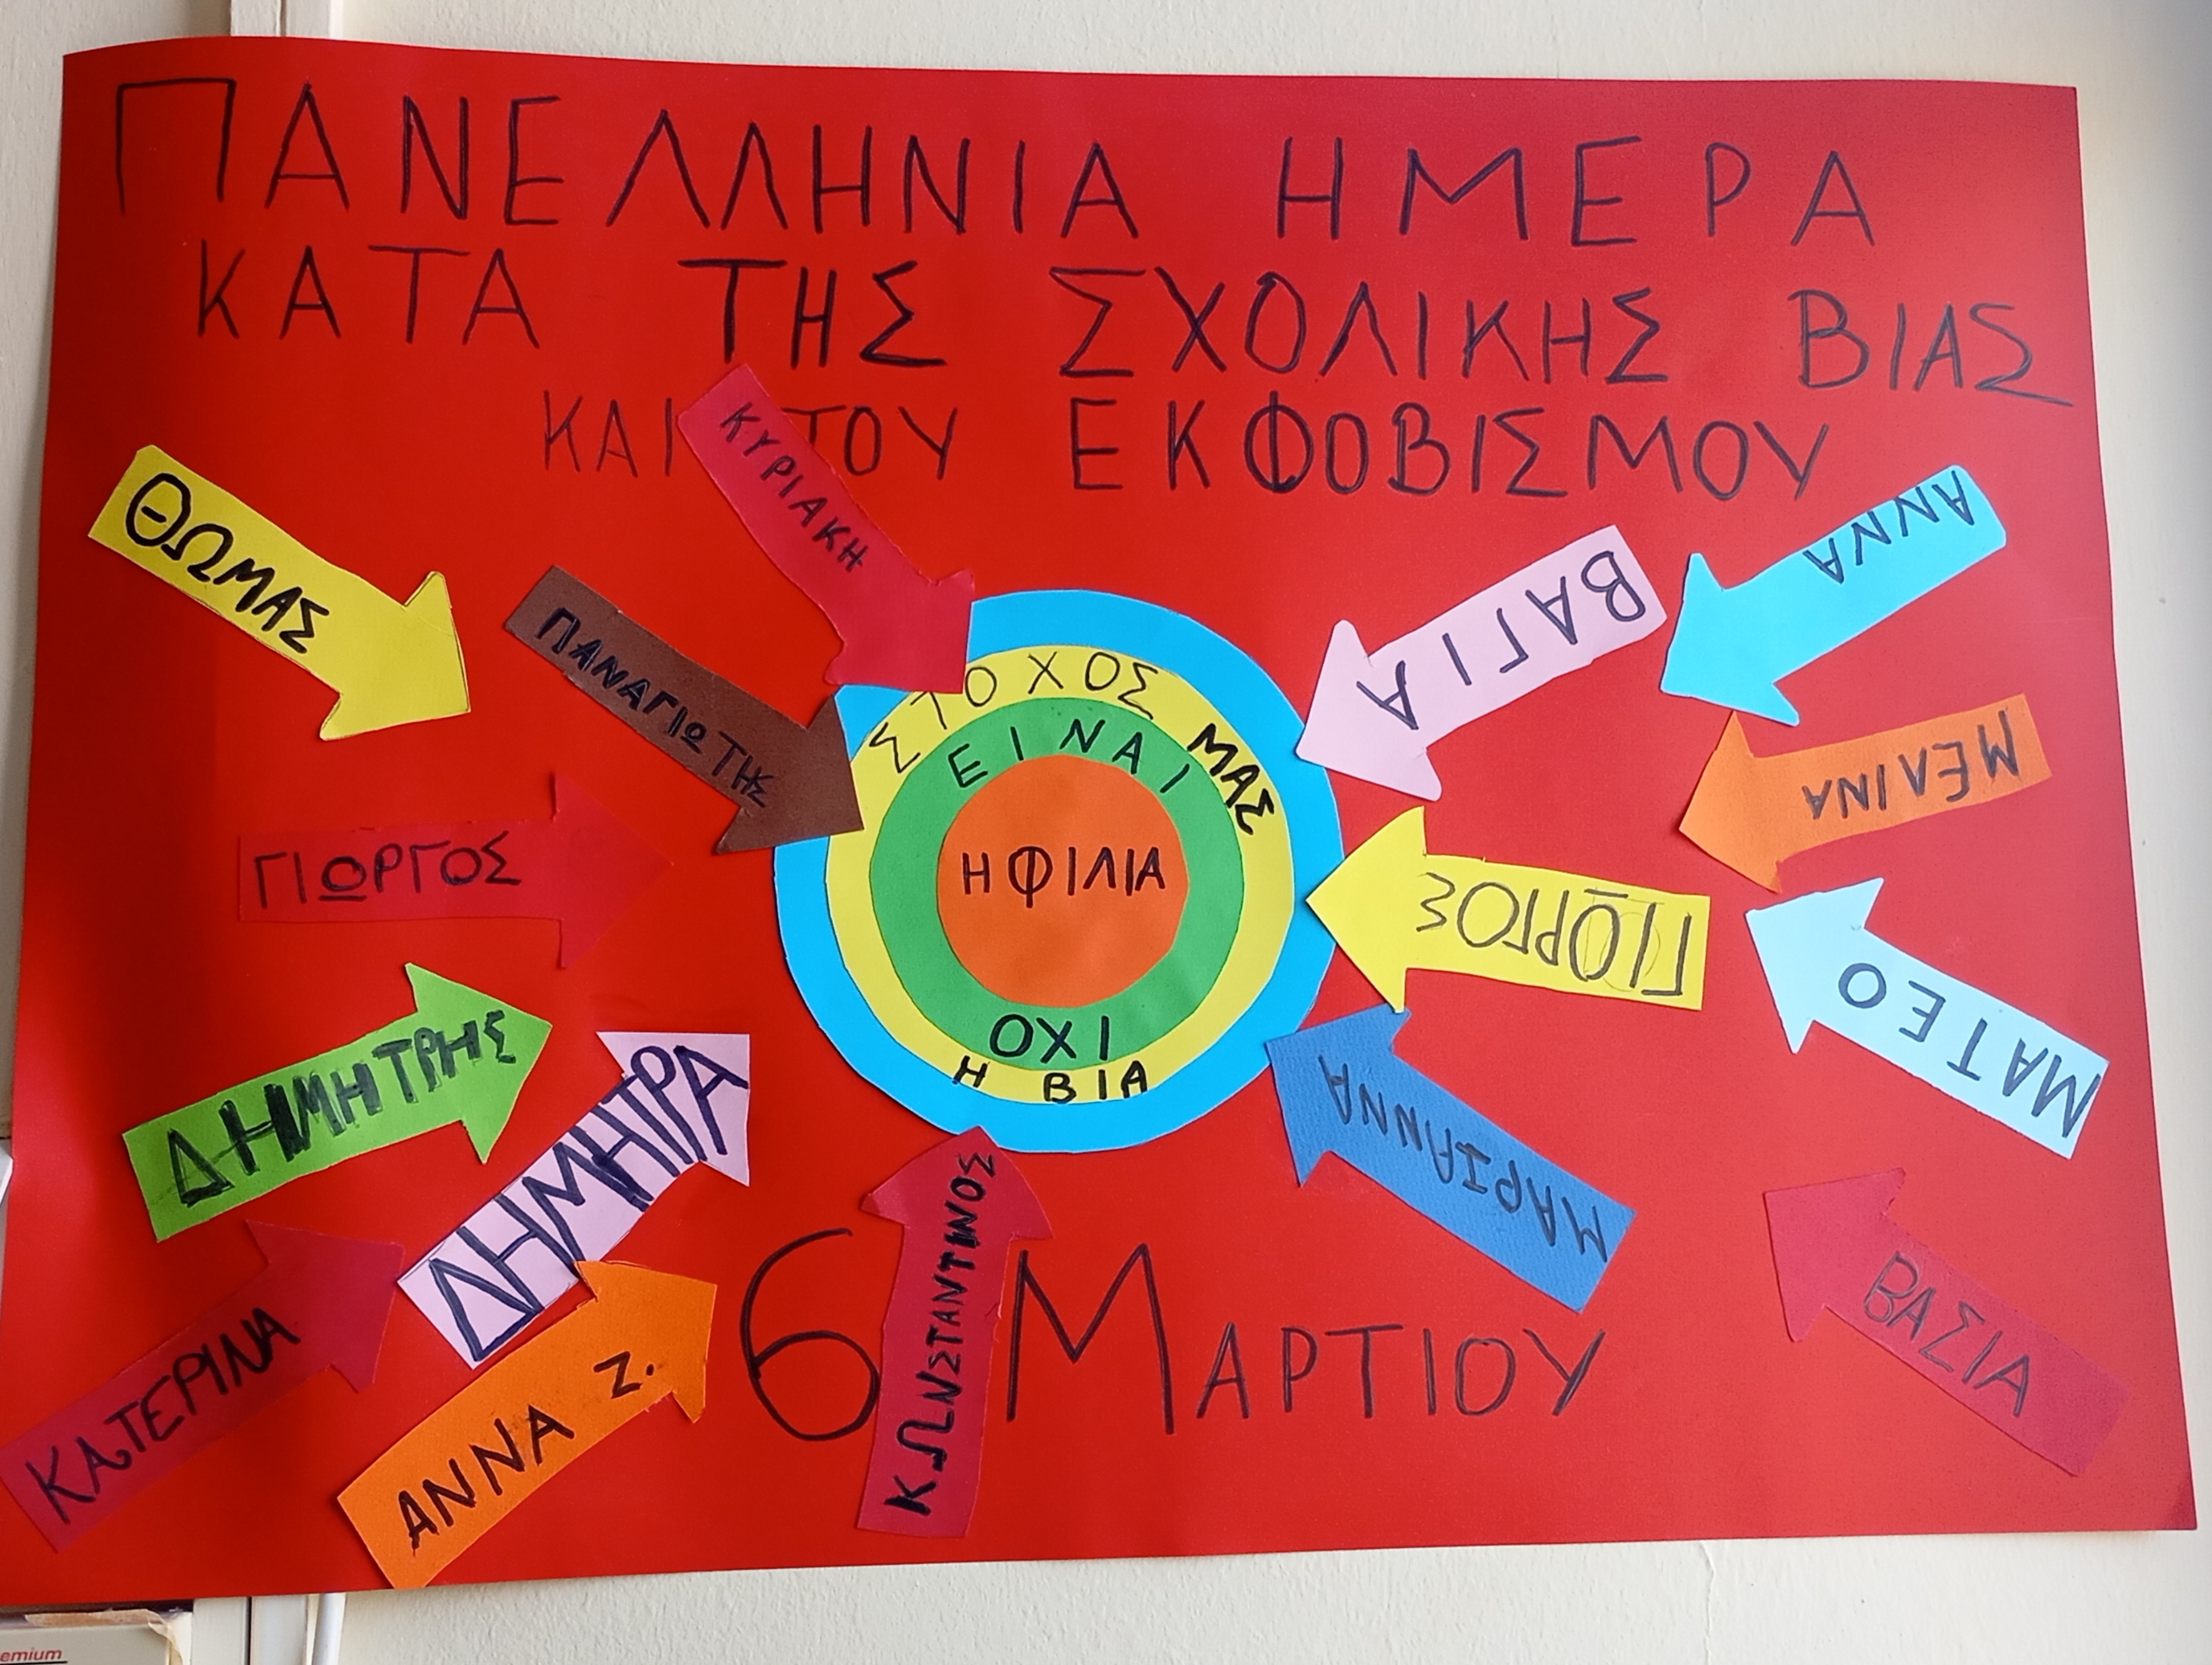 ΠΑΝΕΛΛΗΝΙΑ ΗΜΕΡΑ
ΚΑΤΑ ΤΗΣ ΣΧΟΛΙΚΗΣ ΒΙΑΣ
ΚΑΙ ΤΟΥ ΕΚΦΟΒΙΣΜΟΥ
ΚΥΡΙΑΚΗ
ΘΩΜΑΣ
ΠΑΝΑΓΙΩΤΗΣ
ΑΝΝΑ
ΒΑΓΙΑ
ΜΕΛΙΝΑ
ΣΤΟΧΟΣ ΜΑΣ
ΕΙΝΑΙ
Η ΦΙΛΙΑ
ΟΧΙ
Η ΒΙΑ
ΓΙΩΡΓΟΣ
ΓΙΩΡΓΟΣ
ΜΑΤΕΟ
ΔΗΜΗΤΡΗΣ
ΔΗΜΗΤΡΑ
ΜΑΡΙΑΝΝΑ
ΚΑΤΕΡΙΝΑ
ΑΝΝΑ Ζ.
ΚΩΝΣΤΑΝΤΙΝΟΣ
ΒΑΣΙΑ
6 ΜΑΡΤΙΟΥ
emium